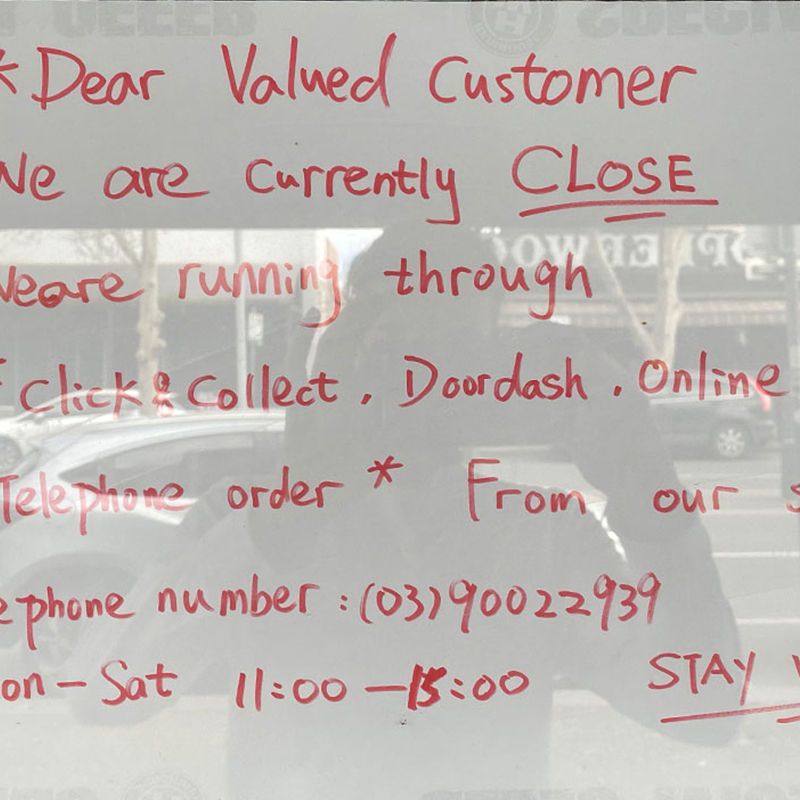 * Dear Valued Customer
We are currently CLOSE
We are running through
Click & Collect, Doordash, Online
Telephone order * From our s
ephone number : (03) 90022939
on - Sat 11:00 - 15:00 STAY